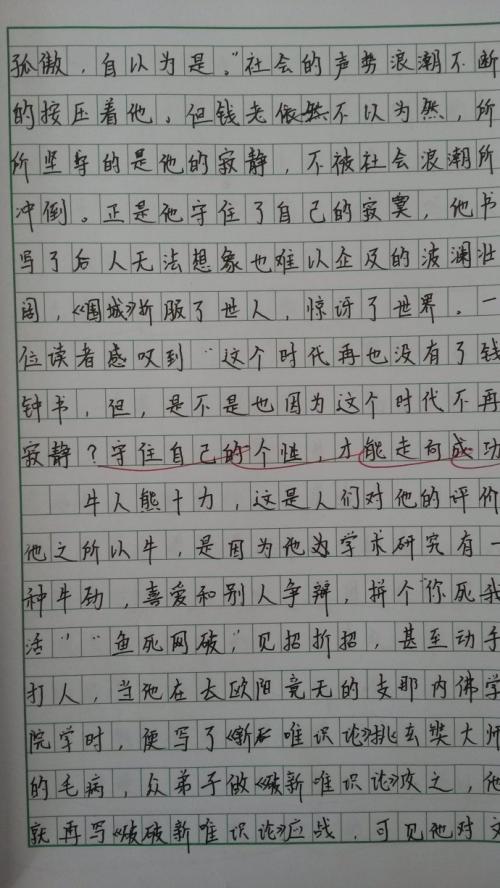 孤傲，自以为是。”社会的声势浪潮不断
的按压着他，但钱老依然不以为然，所
所坚守的是他的寂静，不被社会浪潮所
冲倒。正是他守住了自己的寂寞，他书
写了后人无法想象也难以企及的波澜壮
阔，《围城》折服了世人，惊讶了世界。一
位读者感叹到“这个时代再也没有了钱
钟书，但，是不是也因为这个时代不再
寂静？守住自己的个性，才能走向成功
牛人熊十力，这是人们对他的评价
他之所以牛，是因为他为学术研究有一
种牛劲，喜爱和别人争辩，拼个“你死我
活”“鱼死网破”，见招折招，甚至动手
打人，当他在去欧阳竟无的支那内佛学
院学时，便写了《新唯识论》挑玄奘大师
的毛病，众弟子做《破新唯识论》攻之，他
就再写《破破新唯识论》应战，可见他对文